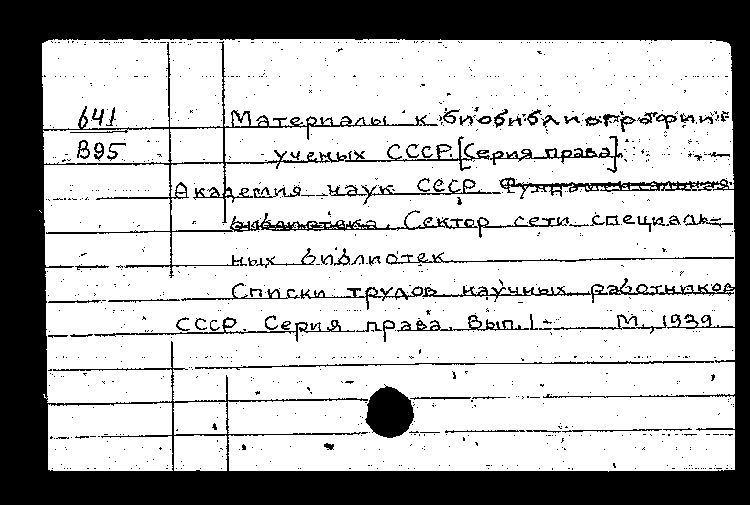 641 Материалы к биобиблиографии
В95 ученых СССР. [Серия права].
Академия наук СССР. Фундаментальная
библиотека. Сектор сети специаль-
ных библиотек.
Списки трудов научных работников
СССР. Серия права. Вып. 1- М., 1939.